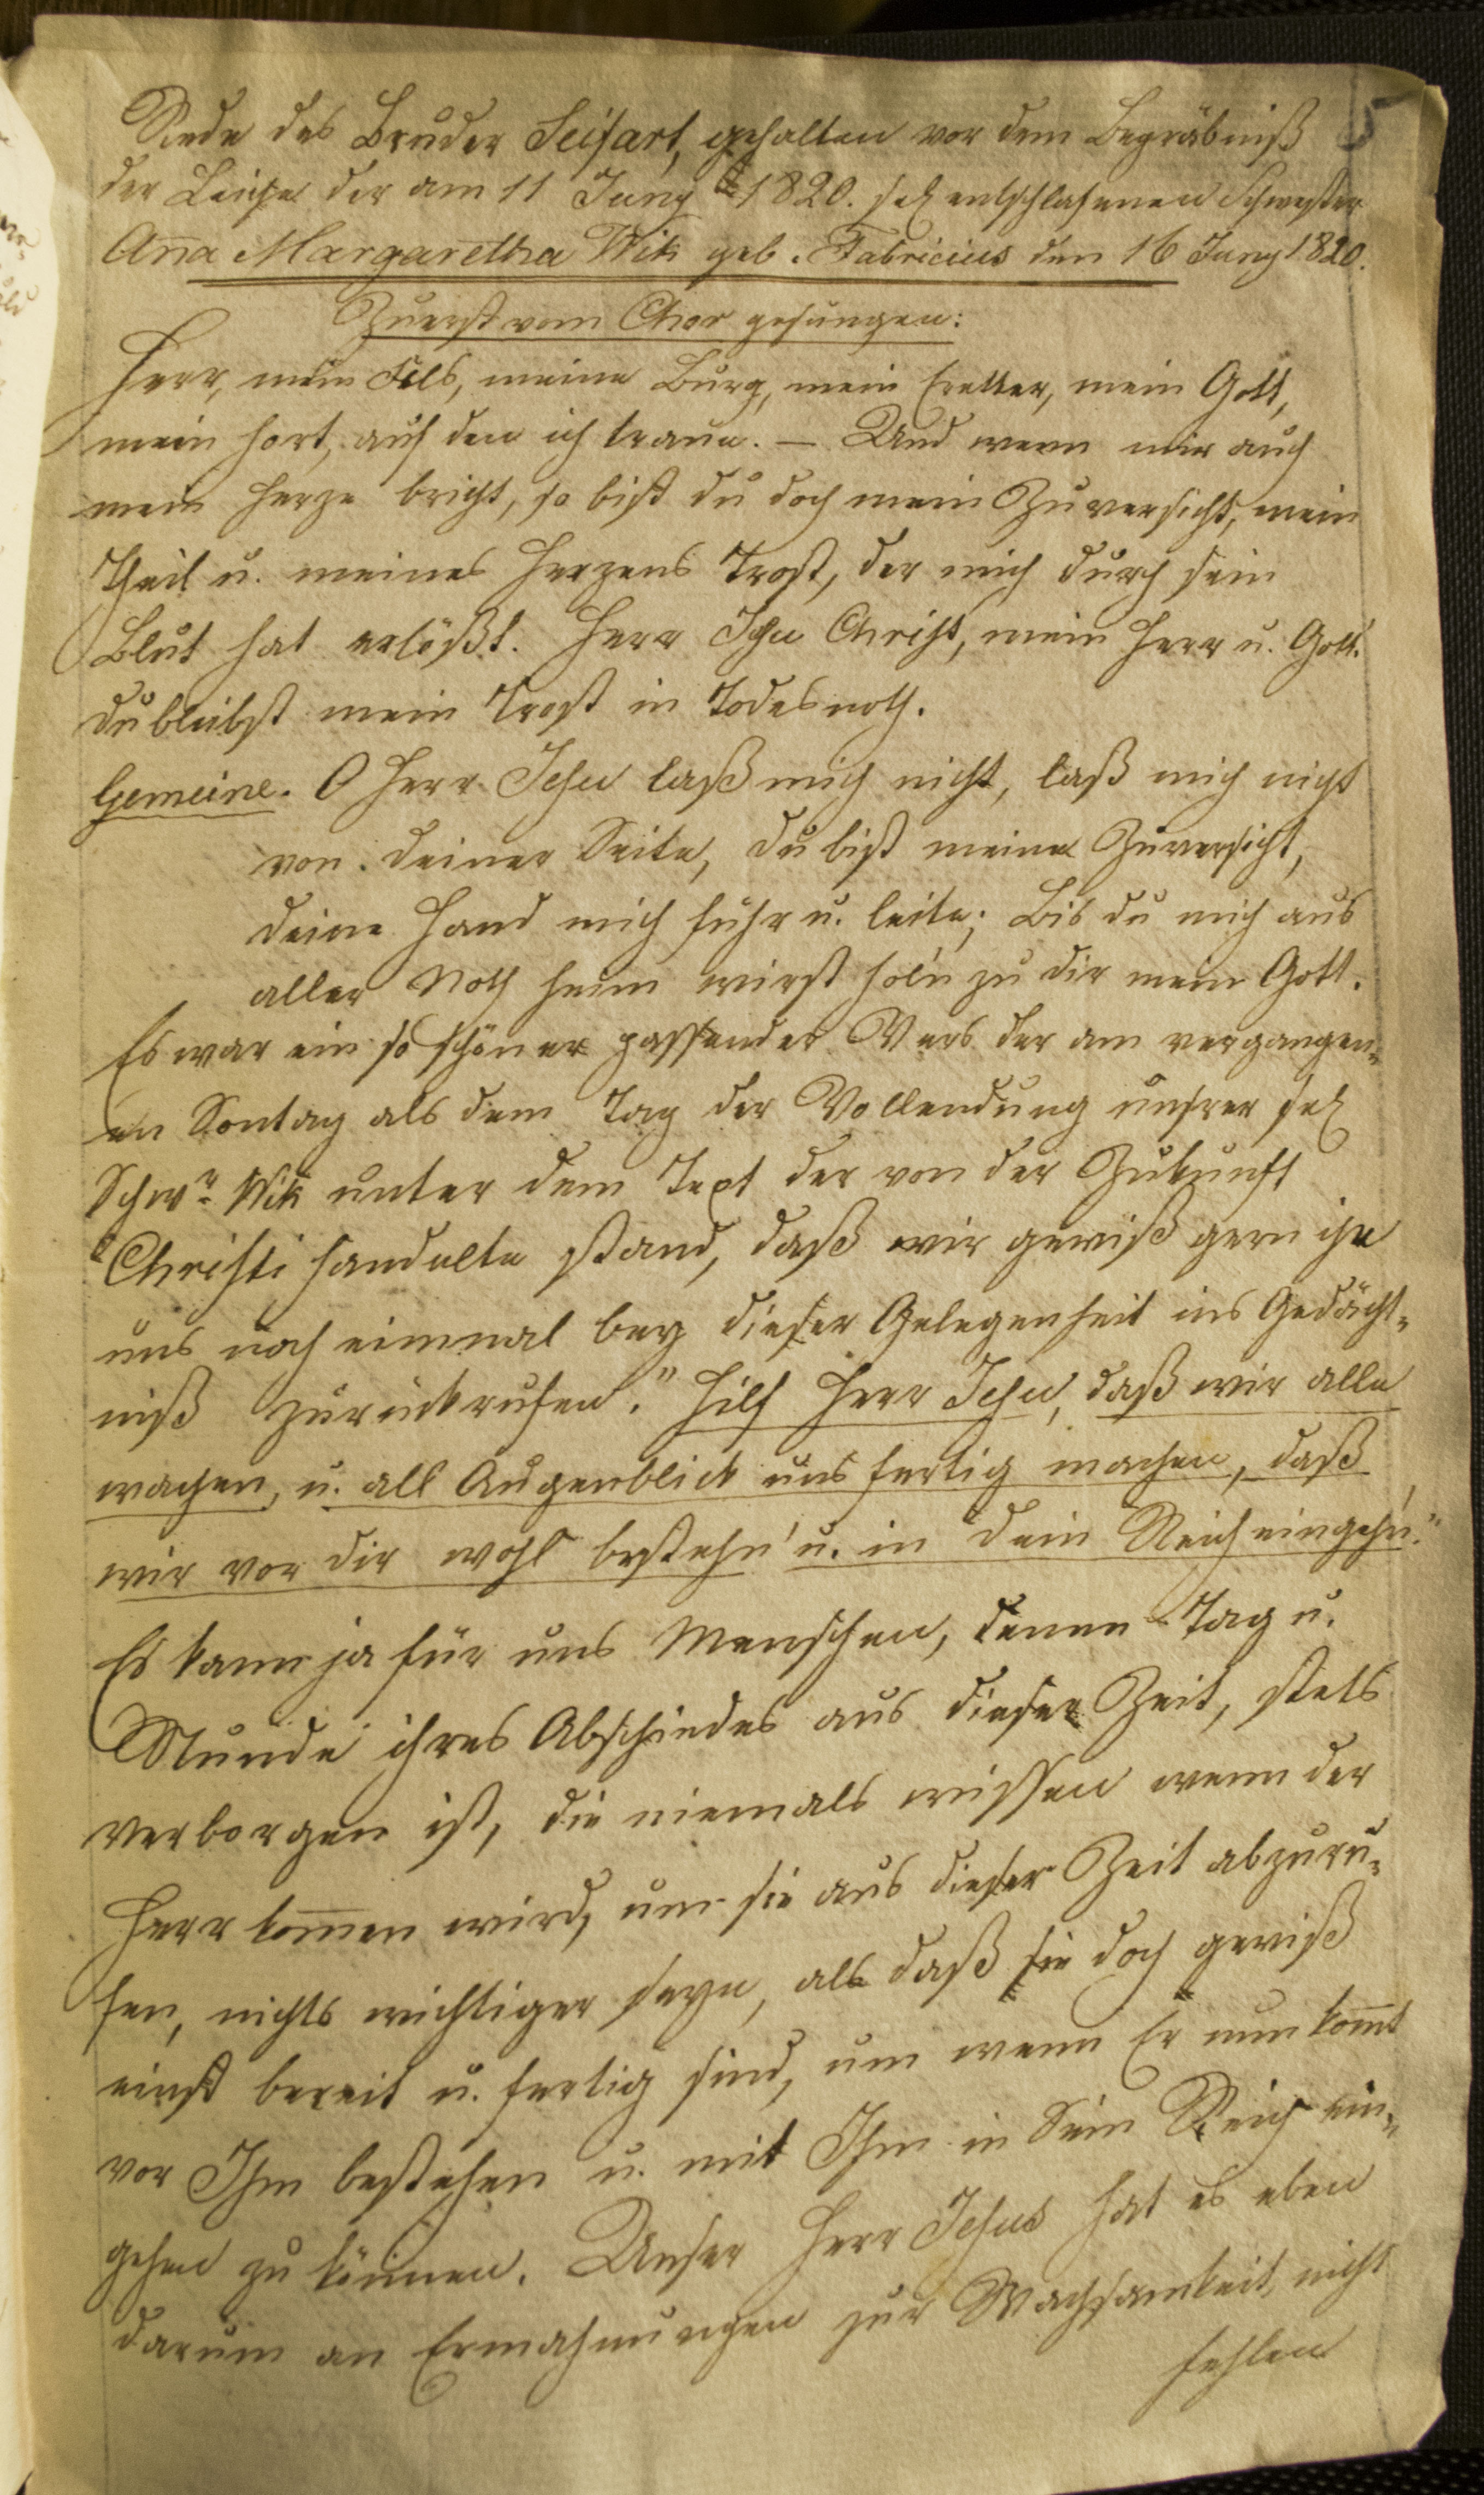 5
Rede des Bruder Seifart, gehalten vor dem Begräbniß
der Leiche der am 11 Juny 1820. sel entschlafenen Schwester
Anna Margaretha Wik geb. Fabricius den 16 Juny 1820.
Zuerst vom Chor gesungen:
Herr, mein Fels, meine Burg, mein Eretter, mein Gott,
mein Hort, auf den ich traue. — Und wenn mir auch
mein Herze bricht, so bist du doch mein Zuversicht, mein
Theil u. meines Herzens Trost, der mich durch sein
Blut hat erlößt. Herr Jesu Christ, mein Herr u. Gott.
du bleibst mein Trost in Todesnoth.
Gemeine. O Herr Jesu laß mich nicht, laß mich nicht
von deiner Seite, du bist meine Zuversicht,
deine Hand mich führ u. leite; Bis du mich aus
aller Noth heim wirst hol'n zu dir mein Gott.
Es war ein so schöner passender Vers der am vergangen„
en Sontag als dem Tag der Vollendung unsrer sel
Schwr. Wik unter dem Text der von der Zukunft
Christi handelte stand, daß wir gewiß gern ihn
uns noch einmal bey dieser Gelegenheit ins Gedächt„
niß zurückrufen. "Hilf Herr Jesu, daß wir alle
wachen, u. all Augenblick uns fertig machen, daß
wir vor dir wohl besteh'n u. in dein Reich eingeh'n."
Es kann ja für uns Menschen, denen Tag u.
Stunde ihres Abschiedes aus dieser Zeit, stets
verborgen ist, die niemals wissen wenn der
Herr kom̄en wird, um sie aus dieser Zeit abzuru„
fen, nichts wichtiger seyn, als daß sie doch gewiß
einst bereit u. fertig sind, um wenn Er nun kom̄t
vor Ihm bestehen u. mit Ihm in Sein Reich ein„
gehen zu können. Unser Herr Jesus hat es eben
darum an Ermahnungen zur Wachsamkeit nicht
fehlen